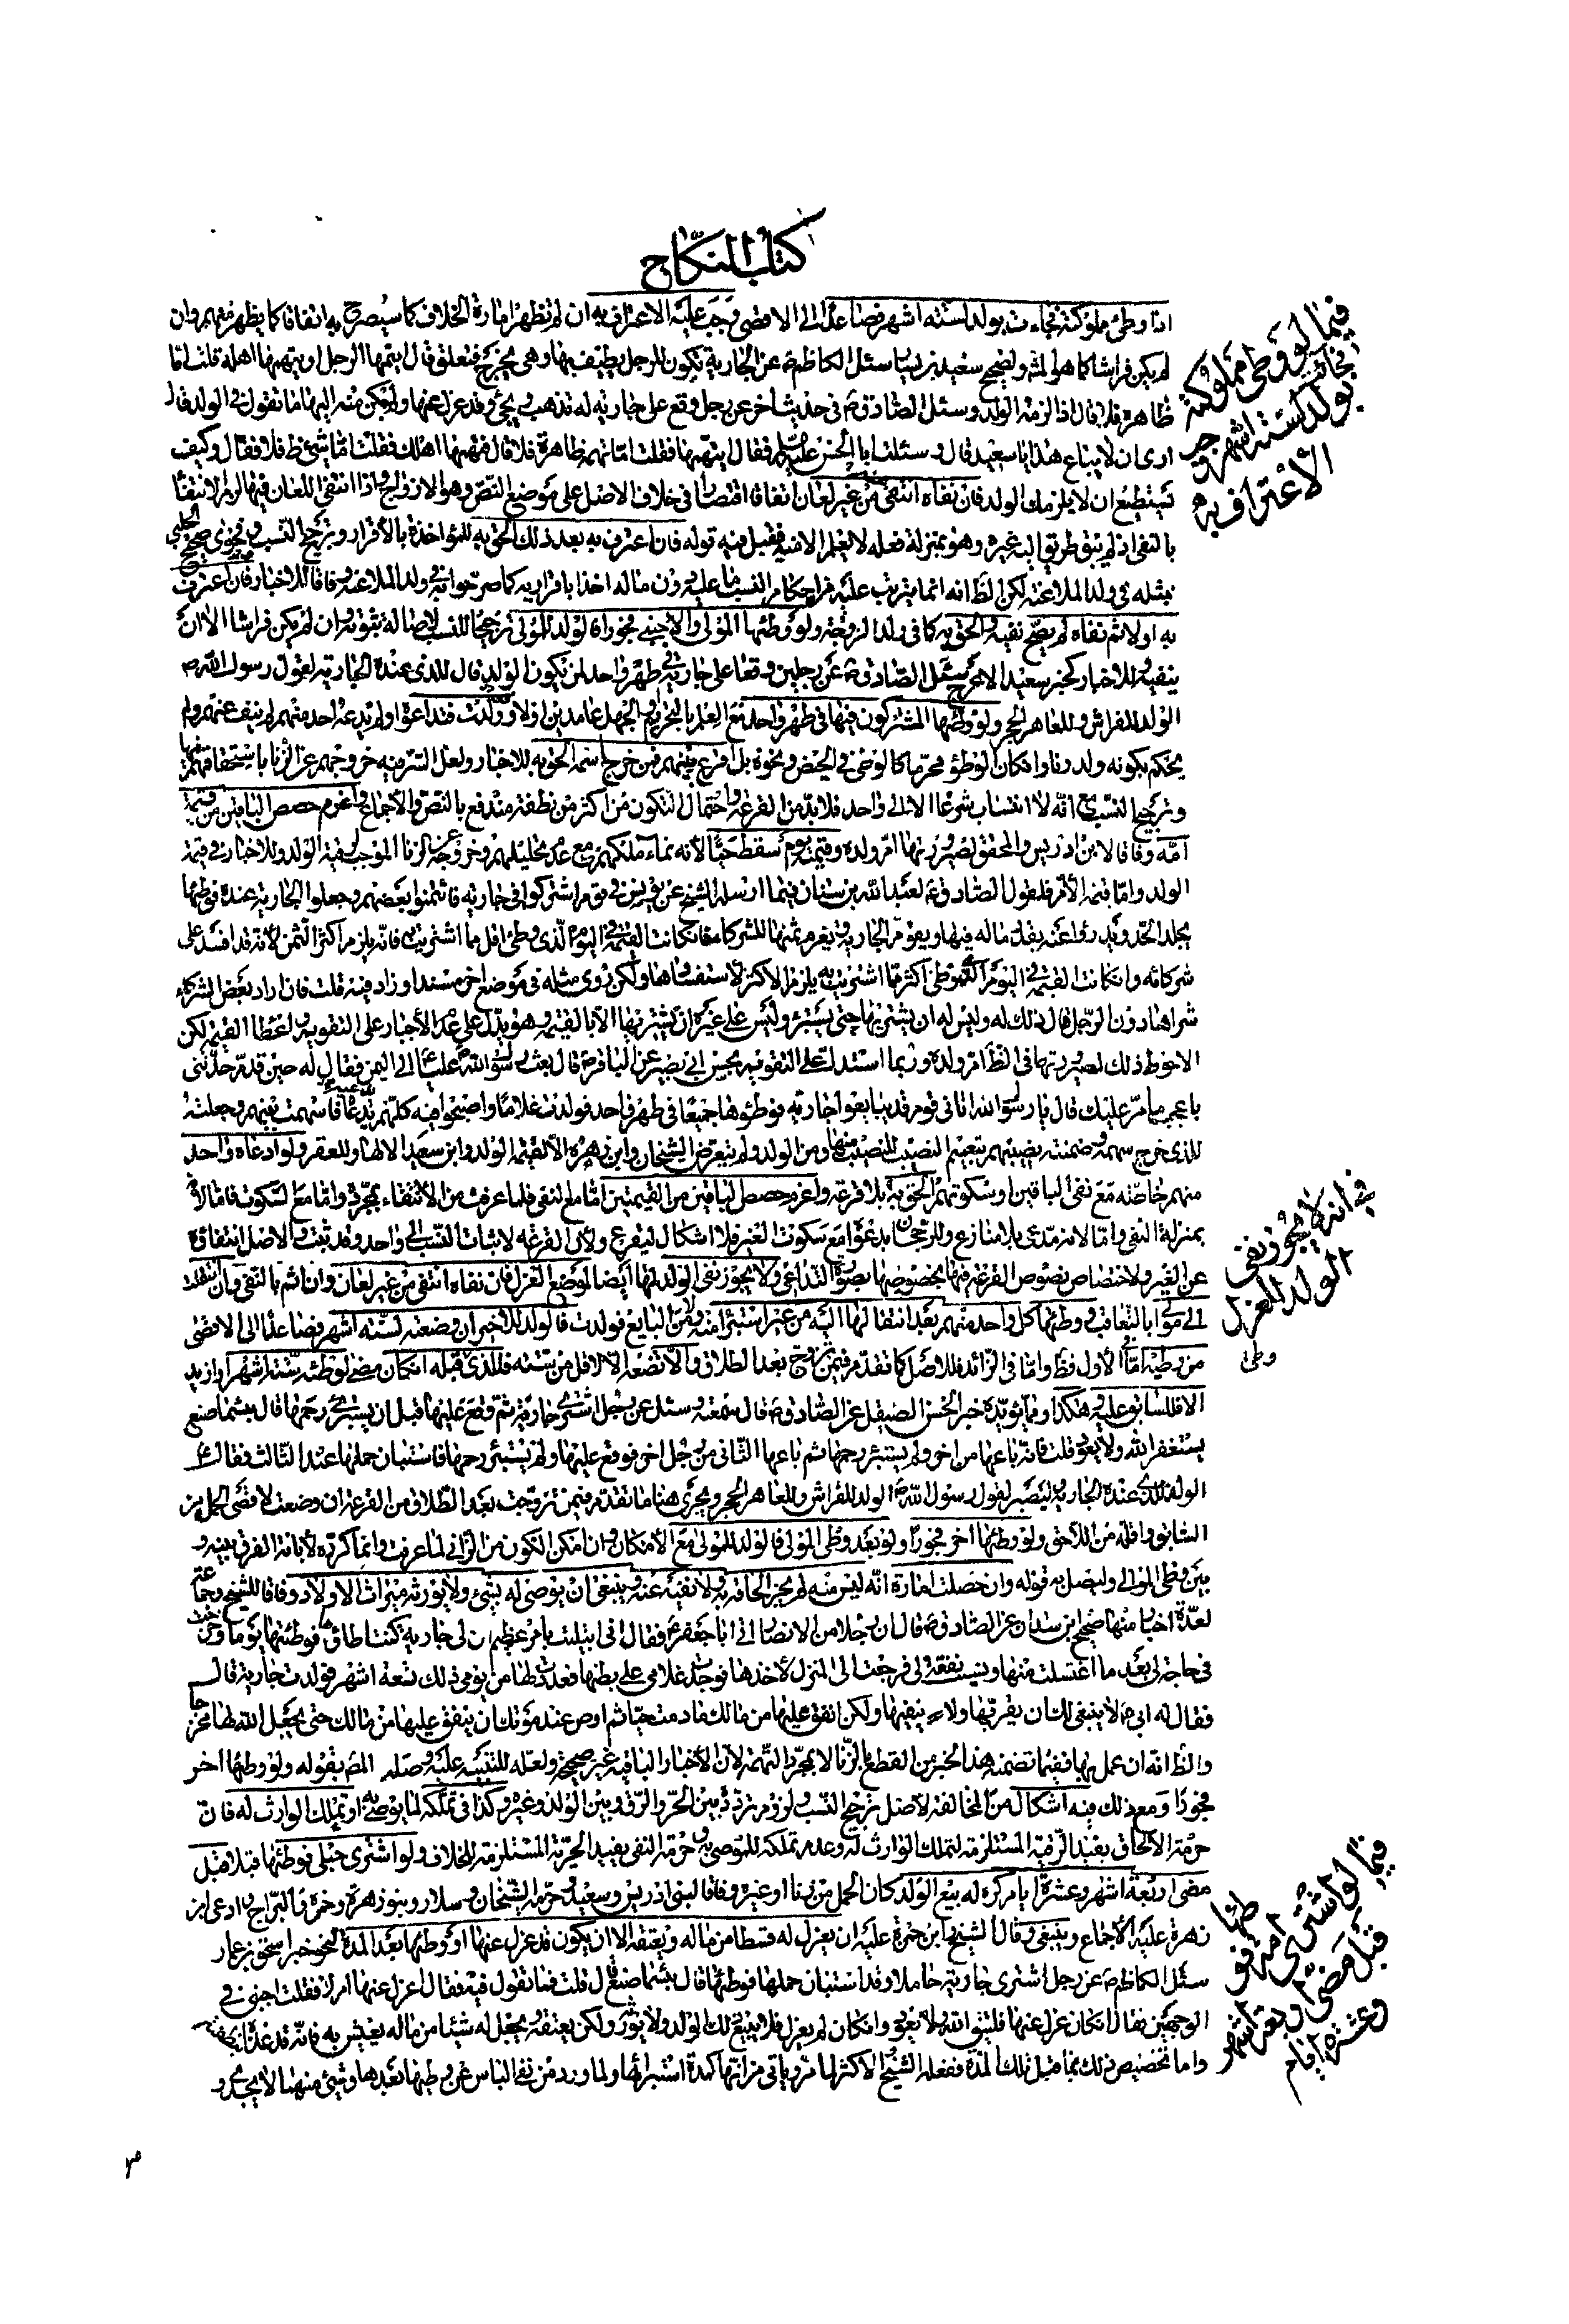 كتاب النكاح
اذا وطئ مملوكته فجاءت بولد لستة اشهر فصاعدا الى الاقصى وجب عليه الاعتراف به ان لم تظهر امارة الخلاف كما سيصرح به اتفاقا كما يظهر منهم وان
لم يكن فراشا كما هو المشهور لصحيح سعيد بن يسار سئل الكاظم ع عن الجارية تكون للرجل يطيف بها وهى تخرج فتعلق قال يتهمها الرجل او يتهمها اهله قلت اما
ظاهرة فلا قال اذا لزمه الولد وسئل الصادق ع فى حديث اخر عن رجل وقع على جارية له تذهب وتجئ وقد عزل عنها ولم يكن منه اليها ما تقول فى الولد قال
ارى ان لا يباع هذا يا سعيد قال وسئلت ابا الحسن عليه السلم فقال ايتهمها فقلت اما تهمة ظاهرة فلا قال فيتهمها اهلك فقلت اما شئ ظ فلا فقال وكيف
تستطيع ان لا يلزمك الولد فان نفاه انتفى من غير لعان اتفاقا اقتصارا فى خلاف الاصل على موضع النص وهو الازواج واذا انتفى اللعان فيها لزم الانتفاء
بالنفى اذ لم يبق طريق اليه غيره وهو بمنزلة فعله لا يعلم الا منه فقبل فيه قوله فان اعترف به بعد ذلك الحق به للمؤاخذة بالاقرار وترجيح النسب وفحوى صحيح الحلبى
بمثله فى ولد الملاعنة لكن الظ انه انما يترتب عليه من احكام النسب ما عليه دون ماله اخذا باقراره كما صرحوا به فى ولد الملاعنة وفاقا للاخبار فان اعترف
به اولا ثم نفاه لم يصح نفيه والحق به كما فى ولد الزوجة ولو وطئها المولى والاجنبى فجورا فالولد للمولى ترجيحا للنسب لاصالة ثبوته وان لم يكن فراشا الا ان
ينفيه وللاخبار كخبر سعيد الاعرج سئل الصادق ع عن رجلين وقعا على جارية فى طهر واحد لمن يكون الولد قال للذى عنده الجارية لقول رسول الله ص
الولد للفراش وللعاهر الحجر ولو وطئها المشتركون فيها فى طهر واحد مع العلم بالتحريم والجهل عامدين او لا وولدت فتداعوه او لم يدعه احد منهم لم ينف عنهم ولم
يحكم بكونه ولد زنا وان كان الوطؤ محرما كالوطى فى الحيض ونحوه بل اقرع بينهم فمن خرج اسمه الحق به للاخبار ولعل السر فيه خروجهم عن الزنا باستحقاقهم منها
وترجيح النسب مع انه لا انتساب شرعا الا الى واحد فلا بد من القرعة واحتمال التكون من اكثر من نطفة مندفع بالنص والاجماع واغرم حصص الباقين من قيمة
امه وفاقا لابن ادريس والمحقق لصيرورتها ام ولده وقيمته يوم سقط حيا لانه نماء ملكهم مع عدم تحليلهم وخروجه عن الزنا الموجب لرقية الولد وللاخبار فى قيمة
الولد واما قيمة الام فلقول الصادق ع لعبد الله بن سنان فيما ارسله الشيخ عن يونس فى قوم اشتركوا فى جارية فائتمنوا بعضهم وجعلوا الجارية عنده فوطئها
يجلد الحد ويدرؤا عنه بقدر ماله فيها ويقوم الجارية ويغرم ثمنها للشركاء فان كانت القيمة فى اليوم الذى وطئ اقل مما اشتريت به فانه يلزم اكثر الثمن لانه قد افسد على
شركائه وان كانت القيمة فى اليوم الذى وطئ اكثر مما اشتريت به يلزم الاكثر لاستفسادها ولكن روى مثله فى موضع اخر مسندا وزاد فيه قلت فان اراد بعض الشركاء
شراها دون الرجل قال ذلك له وليس له ان يشتريها حتى يستبرئ وليس على غيره ان يشتريها الا بالقيمة وهو يدل على عدم الاجبار على التقويم واعطاء القيمة لكن
الاحوط ذلك لصيرورتها فى الظ ام ولده وربما استدل على التقويم بحسن ابى بصير عن الباقر ع قال بعث رسول الله ص عليا ع الى اليمن فقال له حين قدم حدثنى
باعجب ما مر عليك قال يا رسول الله اتانى قوم قد تبايعوا جارية فوطئوها جميعا فى طهر واحد فولدت غلاما واصبحوا فيه كلهم يدعيه فاسهمت بينهم وجعلته
للذى خرج سهمه وضمنته نصيبهم بتعميم النصيب للنصيب منها ومن الولد ولم يتعرض الشيخان وابن زهرة الا لقيمة الولد وابن سعيد الا لها وللعقر ولو ادعاه واحد
منهم خاصة مع نفى الباقين او سكوتهم الحق به بلا قرعة واغرم حصص الباقين من القيمتين اما مع النفى فلما عرفت من الانتفاء بمجرده واما مع السكوت فاما لانه
بمنزلة النفى واما لانه مدعى بلا منازع وللرجحان بدعواه مع سكوت الغير فلا اشكال ليقرع ولان القرعة لاثبات النسب الى واحد وقد ثبت والاصل انتفاؤه
عن الغير ولاختصاص نصوص القرعة فيها بخصوصها بصورة التداعى ولا يجوز نفى الولد لها ايضا لموضع العزل فان نفاه انتفى من غير لعان وان اثم بالنفى وان انتقلت
الى موال بالتعاقب وطئها كل واحد منهم بعد انتقالها اليه من غير استبراء منه ولا من البايع فولدت فالولد للاخير ان وضعته لستة اشهر فصاعدا الى الاقصى
من وطيه اما فى الاول فظ واما فى الزائد فللاصل كما تقدم فيمن تزوج بعد الطلاق والا تضعه الا لاقل من ستة فللذى قبله ان كان مضى لوطئه ستة اشهر او ازيد
الا فللسابق عليه وهكذا ومما يؤيده خبر الحسن الصيقل عن الصادق ع قال سمعته وسئل عن رجل اشترى جارية ثم وقع عليها قبل ان يستبرئ رحمها قال بئسما صنع
يستغفر الله ولا يعود قلت فانه باعها من اخر ولم يستبرء رحمها ثم باعها الثانى من رجل اخر فوقع عليها ولم يستبرئ رحمها فاستبان حملها عند الثالث فقال ع
الولد للذى عنده الجارية وليصبر لقول رسول الله ص الولد للفراش وللعاهر الحجر ويجرى هنا ما تقدم فيمن تزوجت بعد الطلاق من القرعة ان وضعت لاقصى الحمل من
السابق واقله من اللاحق ولو وطئها اخر فجورا ولو بعد وطى المولى فالولد للمولى مع الامكان وان امكن التكون من الزانى لما عرفت وانما كرره لابانة الفرق بينه و
بين وطى الموالى وليصل به قوله وان حصلت امارة انه ليس منه لم يجز الحاقه به ولا نفيه عنه وينبغى ان يوصى له بشئ ولا يورثه ميراث الاولاد وفاقا للشيخ وجماعة
لعدة اخبار منها صحيح ابن سنان عن الصادق ع قال ان رجلا من الانصار اتى ابا جعفر ع فقال انى ابتليت بامر عظيم ان لى جارية كنت اطاؤها فوطئتها يوما وخرجت
فى حاجة لى بعد ما اغتسلت منها ونسيت نفقة لى فرجعت الى المنزل لاخذها فوجدت غلامى على بطنها فعددت لها من يومى ذلك تسعة اشهر فولدت جارية قال
فقال له ابى ع لا ينبغى لك ان يقربها ولا ينفيها ولكن انفق عليها من مالك ما دمت حيا ثم اوص عند موتك ان ينفق عليها من مالك حتى يجعل الله لها مخرجا
والظ انه ان عمل بها ففيما تضمنه هذا الخبر من القطع بالزنا لا بمجرد التهمة لان الاخبار الباقية غير صحيحة ولعله للتنبيه عليه وصله المص بقوله ولو وطئها اخر
فجورا ومع ذلك فيه اشكال من المخالفة لاصل ترجيح النسب ولزوم تردده بين الحر والرق وبين الولد وغيره وكذا فى تملكه لما يوصى به او تملك الوارث له فان
حرمة الالحاق يفيد الرقية المستلزمة لتملك الوارث له وعدم تملكه للموصى به وحرمة النفى يفيد الحرية المستلزمة للخلاف ولو اشترى حبلى فوطئها قبلا قبل
مضى اربعة اشهر وعشرة ايام كره له بيع الولد كان الحمل من زنا او غيره وفاقا لبنى ادريس وسعيد وحرمه الشيخان وسلار وبنو زهرة وحمزة والبراج وادعى ابن
زهرة عليه الاجماع وينبغى وقال الشيخ وابن حمزة عليه ان يعزل له قسطا من ماله ويعتقه الا ان يكون قد عزل عنها او وطئها بعد المدة لنحو خبر اسحق بن عمار
سئل الكاظم ع عن رجل اشترى جارية حاملا وقد استبان حملها فوطئها قال بئسما صنع قال قلت فما تقول فيه فقال اعزل عنها ام لا فقلت اجبنى فى
الوجهين فقال ان كان عزل عنها فليتق الله ولا يعود وان كان لم يعزل فلا يبيع ذلك الولد ولا يورثه ولكن يعتقه ويجعل له شيئا من ماله يعيش به فانه قد غذاه بنطفته
واما تخصيص ذلك بما قبل تلك المدة ففعله الشيخ والاكثر لما مر وياتى من انها كمدة استبرائها ولما ورد من نفى الباس عن وطيها بعدها وشئ منهما لا يجدى و
فيما لو وطى مملوكته
فجائت
بولد لستة اشهر وجب
الاعتراف به
فى انه لا يجوز نفى
الولد للعزل
وطئ
فيما لو اشترى امة فو
طئها
قبل مضى اربعة اشهر
وعشرة ايام